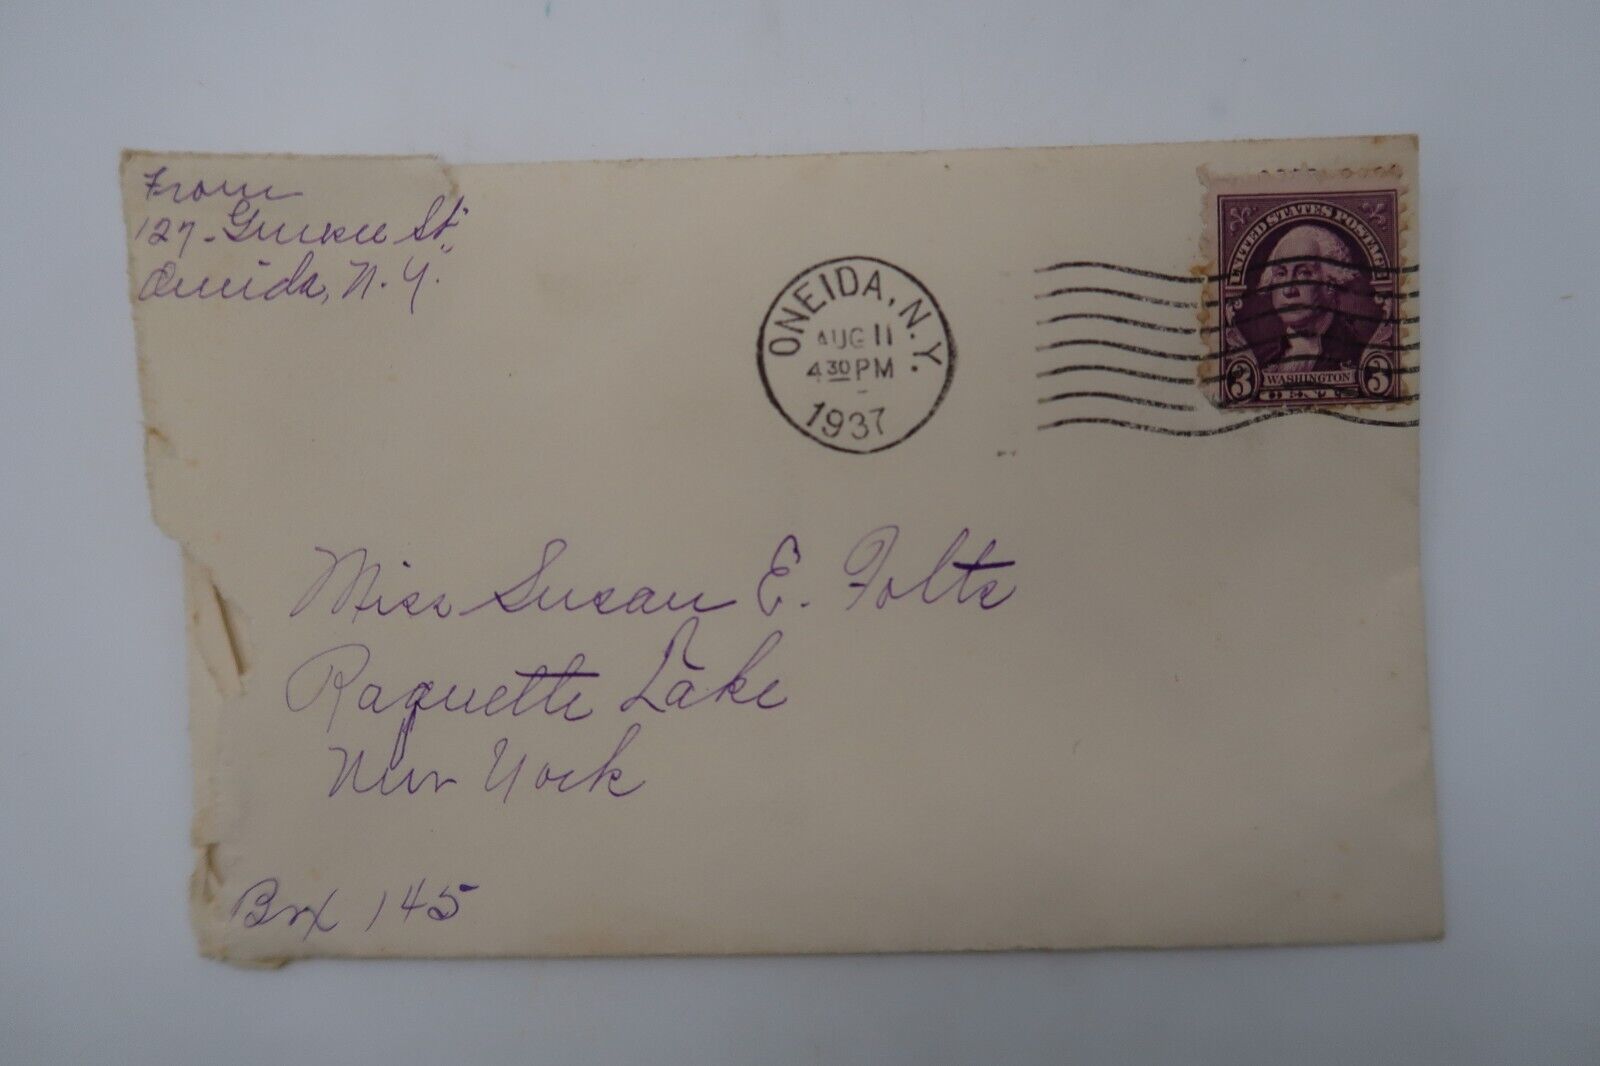 From
127- St.
Oneida, N.Y.
ONEIDA, N.Y.
AUG 11
4 30 PM
1937
UNITED STATES POSTAGE
3 WASHINGTON 3
CENTS
Miss Susan E. Folts
Raquette Lake
New York
Box 145